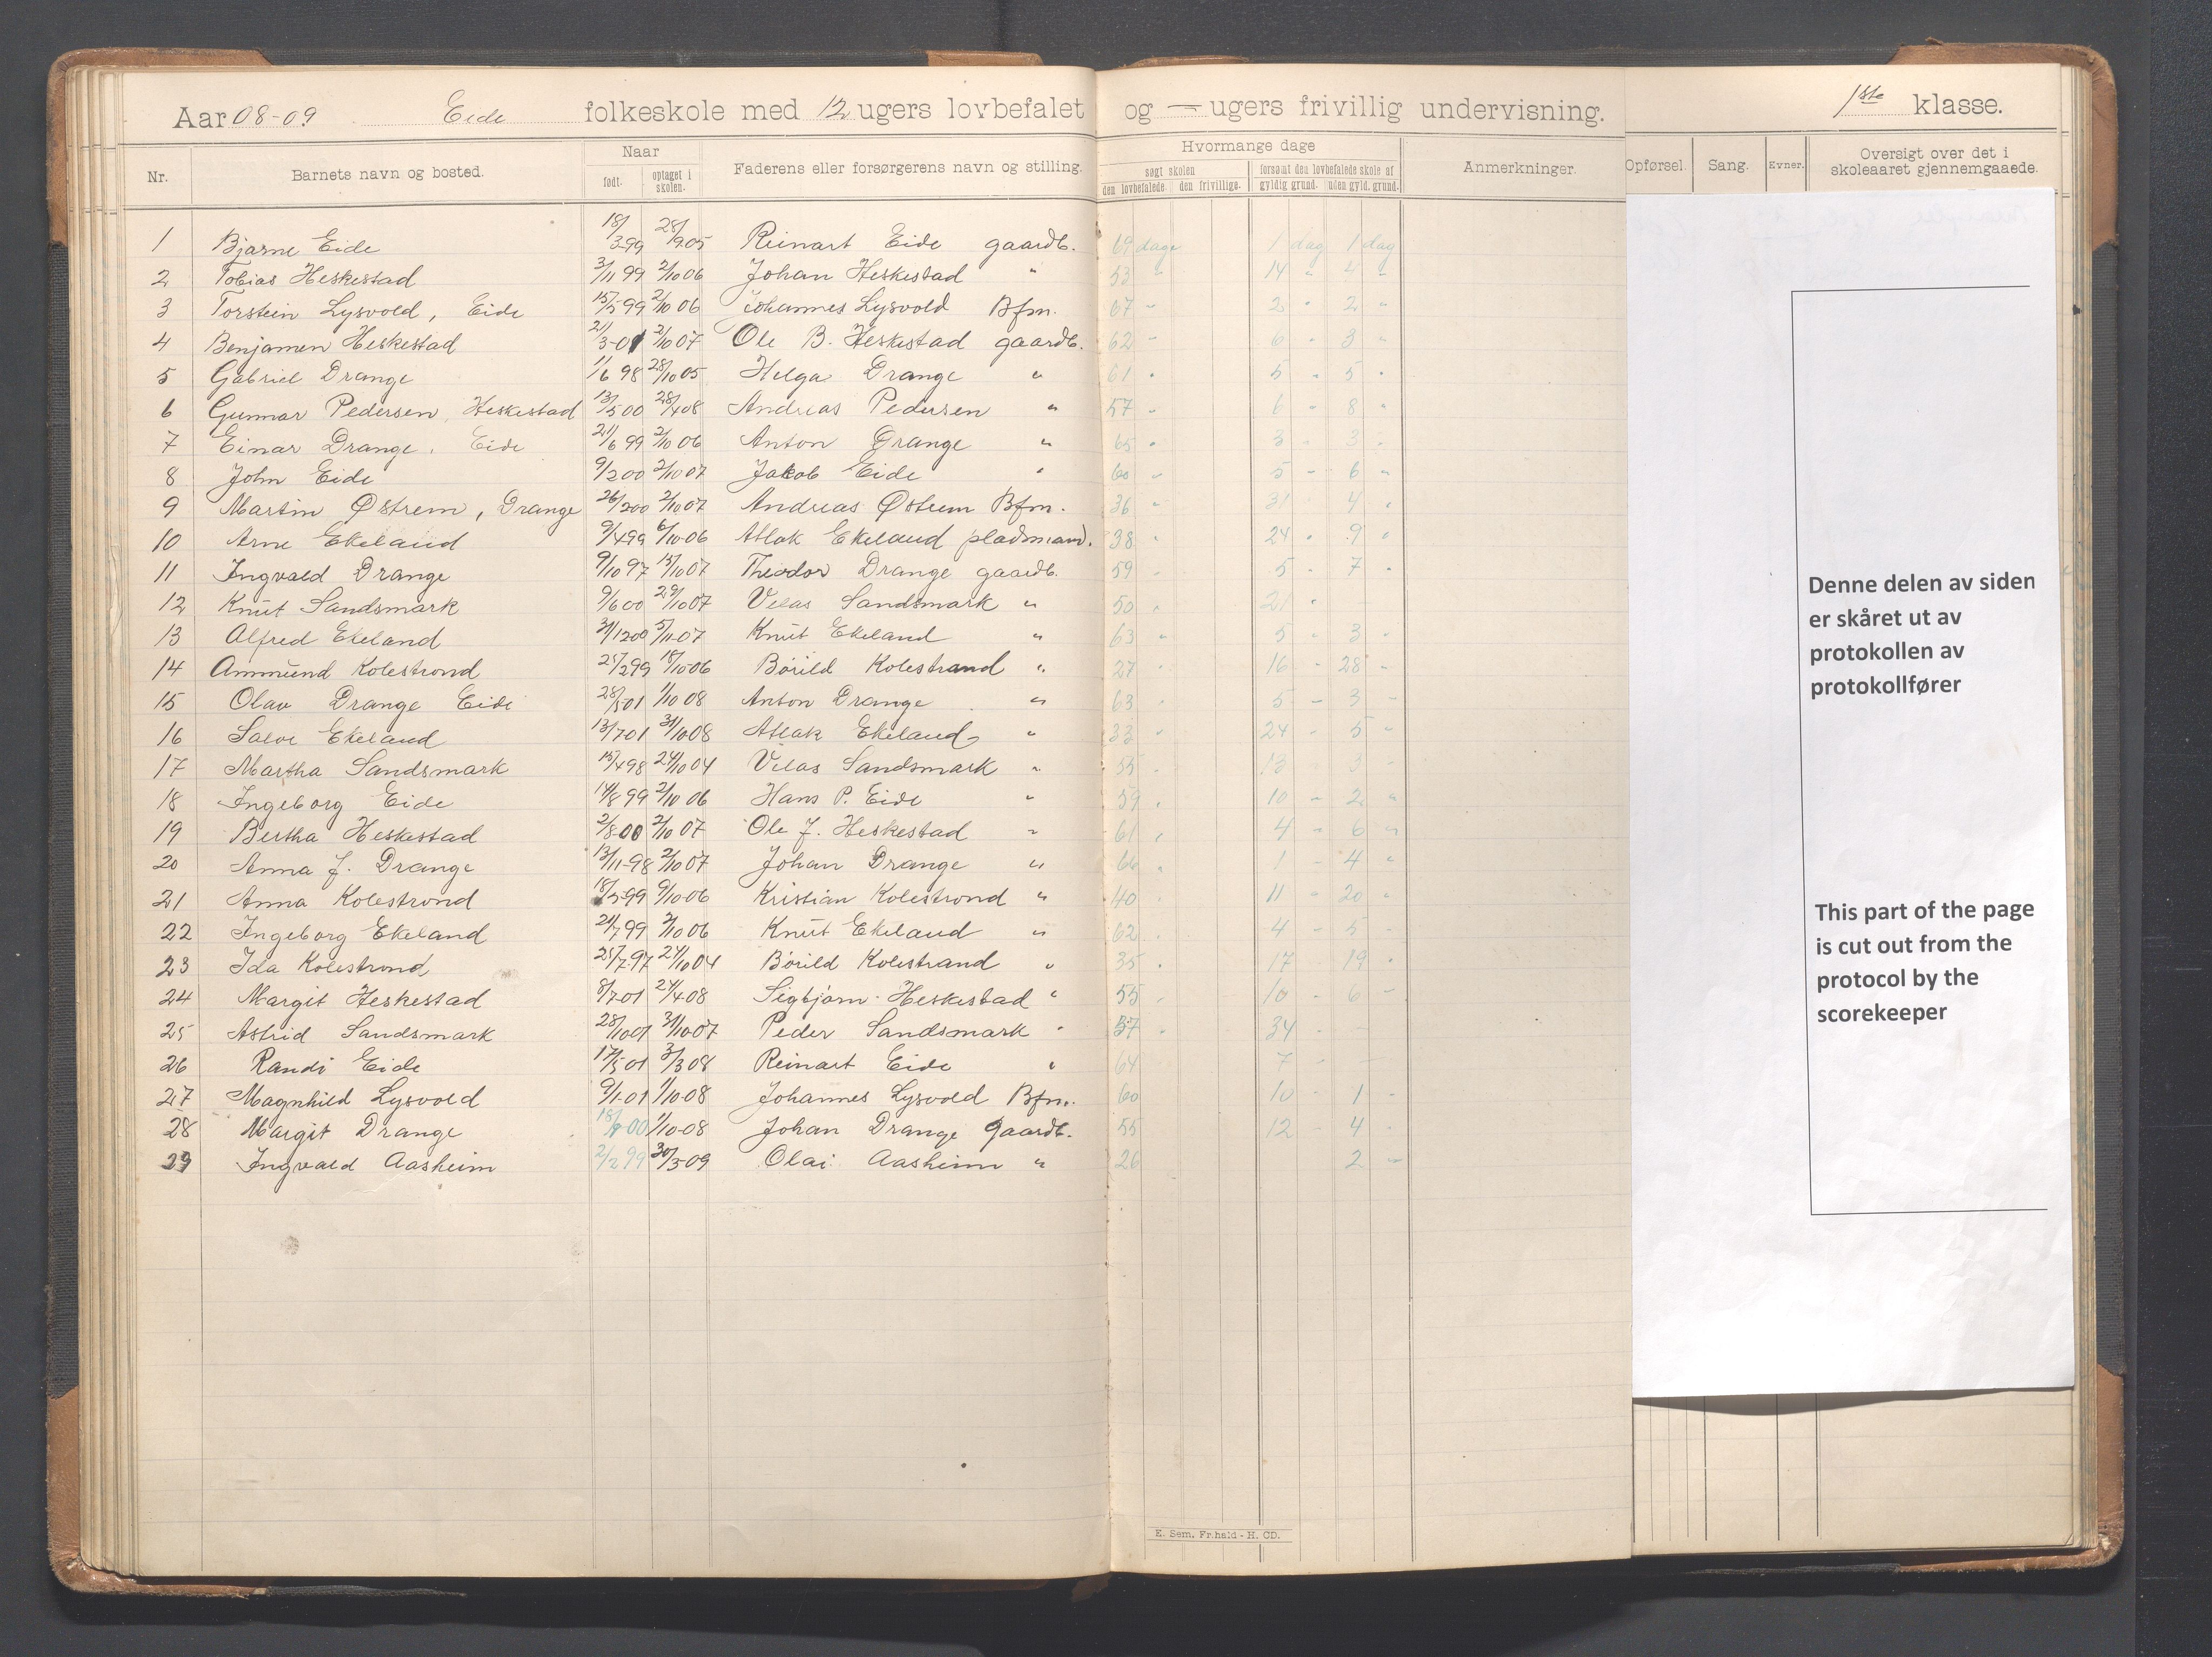 Aar 08-09 Eide folkeskole med 12 ugers lovbefalet og — ugers frivillig undervisning. 1ste klasse.
Nr. Barnets navn og bosted. Naar født. optaget i skolen. Faderens eller forsørgerens navn og stilling. Hvormange dage søgt skolen den lovbefalede. den frivillige. forsømt den lovbefalede skole af gyldig grund. uden gyld. grund. Anmerkninger. Opførsel. Sang. Evner. Oversigt over det i skoleaaret gjennemgaaede.
1 Bjarne Eide 18/3 99 28/9 05 Reinart Eide gaardb. 69 dage 1 dag 1 dag
2 Tobias Heskestad 3/11 99 2/10 06 Johan Heskestad " 53 " 14 " 4 "
3 Torstein Lysvold, Eide 15/5 99 2/10 06 Johannes Lysvold Bfm. 67 " 2 " 2 "
4 Benjamen Heskestad 21/3-01 2/10 07 Ole B. Heskestad gaardb. 62 " 6 " 3 "
5 Gabriel Drange 1/6 98 28/10 05 Helga Drange " 61 " 5 " 5 "
6 Gunnar Pedersen, Heskestad 13/5 00 28/4 08 Andreas Pedersen " 57 " 6 " 8 "
7 Einar Drange, Eide 21/6 99 2/10 06 Anton Drange " 65 " 3 " 3 "
8 John Eide 9/2 00 2/10 07 Jakob Eide " 60 " 5 " 6 "
9 Martin Østrem, Drange 26/2 00 2/10 07 Andreas Østrem Bfm. 36 " 31 4 "
10 Arne Ekeland 9/4 99 6/10-06 Atlak Ekeland pladsmand. 38 " 24 " 9 "
11 Ingvald Drange 9/10 97 15/10 07 Theodor Drange gaardb. 59 " 5 " 7 "
12 Knut Sandsmark 9/6 00 29/10 07 Velas Sandsmark " 50 " 21 "
13 Alfred Ekeland 31/12 00 5/11-07 Knut Ekeland " 63 " 5 " 3 "
14 Ammund Kolestrond 25/2 99 18/10-06 Børild Kolestrand " 27 " 16 " 28 "
15 Olav Drange Eide 28/5 01 1/10 08 Anton Drange " 63 " 5 " 3 "
16 Salve Ekeland 13/7 01 31/10 08 Atlak Ekeland " 33 " 24 " 5 "
17 Martha Sandsmark 15/4 98 24/10 04 Velas Sandsmark " 55 " 13 " 3 "
18 Ingeborg Eide 14/8 99 2/10 06 Hans P. Eide " 59 " 10 " 2 "
19 Bertha Heskestad 2/8-00 2/10 07 Ole J. Heskestad " 61 " 4 " 6 "
20 Anna J. Drange 13/11-98 2/10 07 Johan Drange " 66 " 1 " 4 "
21 Anna Kolestrond 18/5-99 9/10-06 Kristian Kolestrond " 40 " 11 " 20 "
22 Ingeborg Ekeland 21/7 99 2/10 06 Knut Ekeland " 62 " 4 " 5 "
23 Ida Kolestrond 25/7-97 24/10 04 Børild Kolestrand " 35 " 17 " 19 "
24 Margit Heskestad 8/7-01 24/4-08 Sigbjørn Heskestad " 55 " 10 " 6 "
25 Astrid Sandsmark 28/10 01 31/10-07 Peder Sandsmark " 37 " 34 "
26 Randi Eide 17/5-01 3/3 08 Reinart Eide " 64 7 "
27 Magnhild Lysvold 9/1-01 1/10-08 Johannes Lysvold Bfm. 60 10 " 1 "
28 Margit Drange 18/9-00 1/10-08 Johan Drange Gaardb. 55 12 " 4 "
29 Ingvald Aasheim 2/2 99 30/3-09 Olai Aasheim " 26 2 "
E. Sem, Fr.hald - H. CD.
Denne delen av siden
er skåret ut av
protokollen av
protokollfører
This part of the page
is cut out from the
protocol by the
scorekeeper